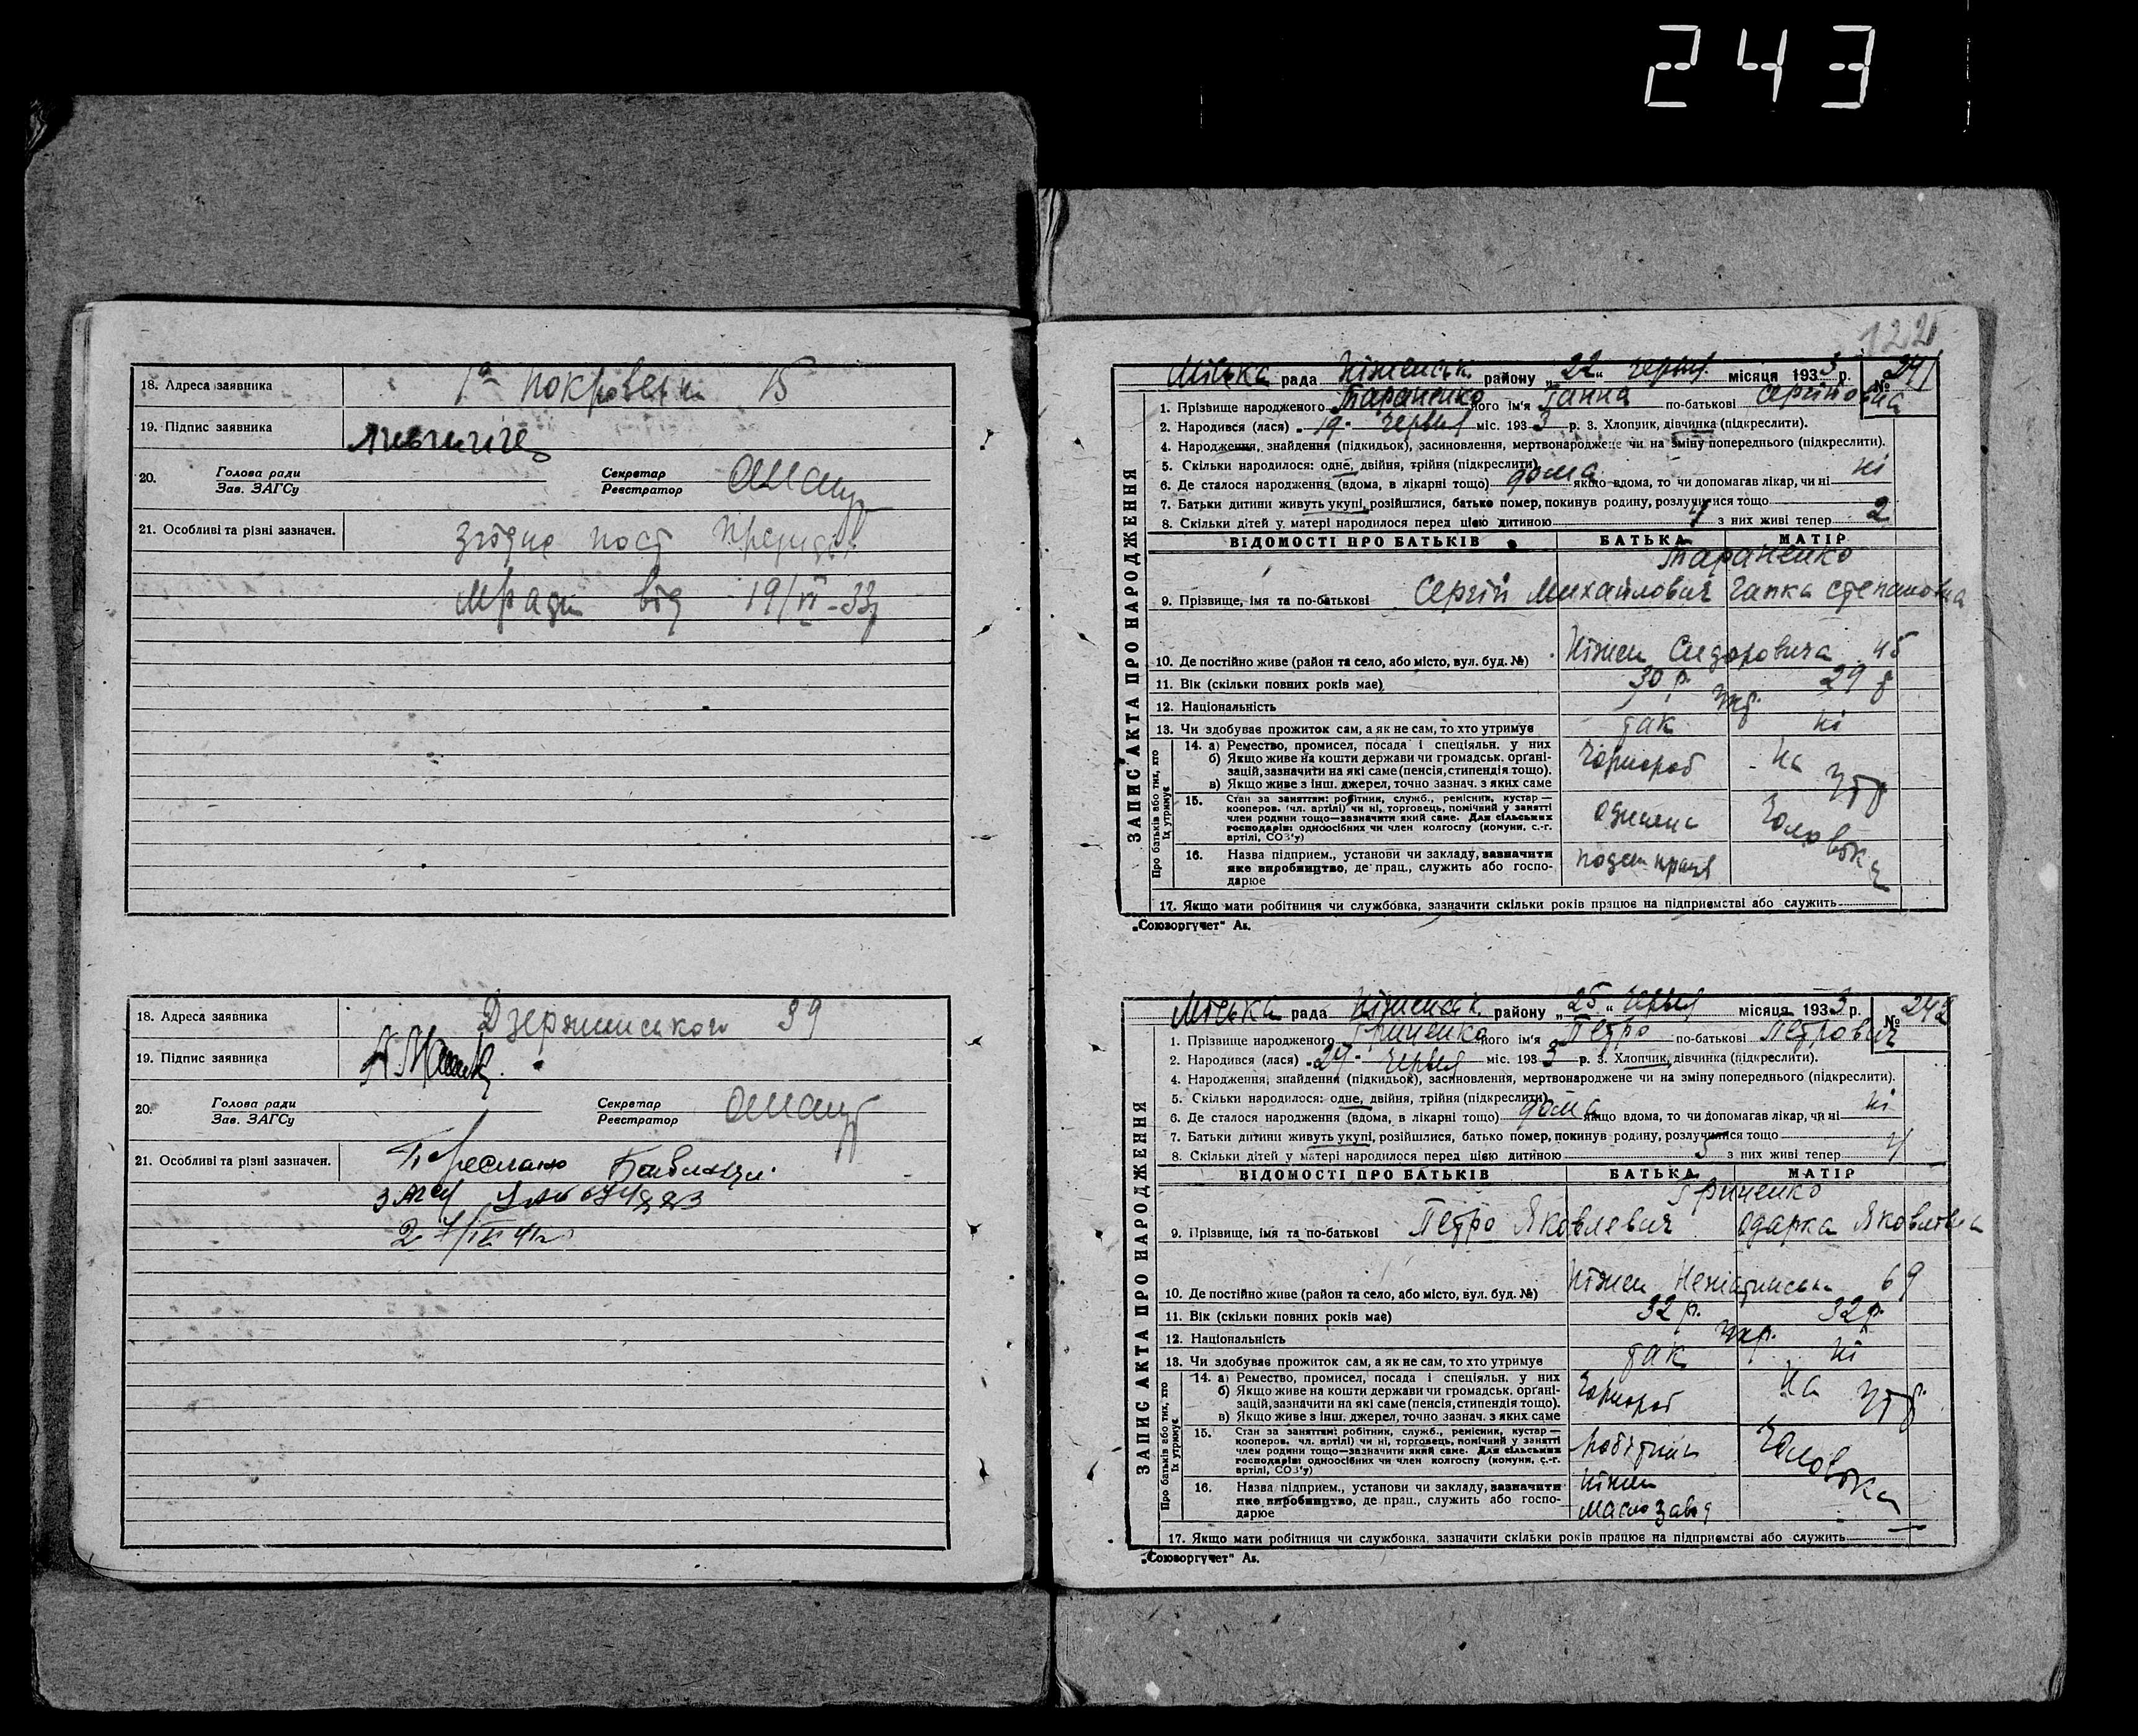 243
18. Адреса заявника 1а Покровськ 15
19. Підпис заявника
20. Голова ради Зав. ЗАГСу Секретар Реєстратор
21. Особливі та різні зазначен. Згідно пост през
М/ради від 19/VI-33р
18. Адреса заявника Дзержинського 39
19. Підпис заявника
20. Голова ради Зав. ЗАГСу Секретар Реєстратор
21. Особливі та різні зазначен. Переслано
27/IX 41
122
ЗАПИС АКТА ПРО НАРОДЖЕННЯ
Міська рада Ніженськ. району „22“ червня місяця 1933 р. № 241
1. Прізвище народженого Тараненко його ім'я Ганна по-батькові Сергіївна
2. Народився (лася) „19“ червня міс. 1933 р. 3. Хлопчик, дівчинка (підкреслити).
4. Народження, знайдення (підкидьок), засиновлення, мертвонароджене чи на зміну попереднього (підкреслити).
5. Скільки народилося: одне, двійня, трійня (підкреслити)
6. Де сталося народження (вдома, в лікарні тощо) дома якщо вдома, то чи допомагав лікар, чи ні ні
7. Батьки дитини живуть укупі, розійшлися, батько помер, покинув родину, розлучилися тощо
8. Скільки дітей у матері народилося перед цією дитиною 4 з них живі тепер 2
ВІДОМОСТІ ПРО БАТЬКІВ БАТЬКА МАТІР
Тараненко
9. Прізвище, імя та по-батькові Сергій Михайлович Гапка Степановна
10. Де постійно живе (район та село, або місто, вул. буд. №) Ніжен Сидоровича 45
11. Вік (скільки повних років має) 30 р. 29 р
12. Національність укр.
13. Чи здобуває прожиток сам, а як не сам, то хто утримує так ні
Про батьків або тих, хто їх утримує
14. а) Ремество, промисел, посада і спеціяльн. у них Чорнороб На утр
б) Якщо живе на кошти держави чи громадськ. органі-
зацій, зазначити на які саме (пенсія, стипендія тощо).
в) Якщо живе з інш. джерел, точно зазнач. з яких саме
15. Стан за заняттям: робітник, служб., ремісник, кустар — Чоловіка
кооперов. (чл. артілі) чи ні, торговець, помічний у занятті
член родини тощо—зазначити який саме. Для сільських
господарів: одноосібних чи член колгоспу (комуни, с.-г.
артілі, СОЗ'у)
16. Назва підприєм., установи чи закладу, зазначити
яке виробництво, де прац., служить або госпо-
дарює
17. Якщо мати робітниця чи службовка, зазначити скільки років працює на підприємстві або служить
„Союзоргучет“ Ак.
ЗАПИС АКТА ПРО НАРОДЖЕННЯ
Міська рада Ніженськ. району „25“ червня місяця 1933 р. № 242
1. Прізвище народженого Гриценко його ім'я Петро по-батькові Петрович
2. Народився (лася) „24“ червня міс. 1933 р. 3. Хлопчик, дівчинка (підкреслити).
4. Народження, знайдення (підкидьок), засиновлення, мертвонароджене чи на зміну попереднього (підкреслити).
5. Скільки народилося: одне, двійня, трійня (підкреслити)
6. Де сталося народження (вдома, в лікарні тощо) дома якщо вдома, то чи допомагав лікар, чи ні ні
7. Батьки дитини живуть укупі, розійшлися, батько помер, покинув родину, розлучилися тощо
8. Скільки дітей у матері народилося перед цією дитиною 5 з них живі тепер 4
ВІДОМОСТІ ПРО БАТЬКІВ БАТЬКА МАТІР
Гриценко
9. Прізвище, імя та по-батькові Петро Яковлевич Одарка Яковлевна
10. Де постійно живе (район та село, або місто, вул. буд. №) Ніжен 69
11. Вік (скільки повних років має) 32 р. 32 р.
12. Національність укр.
13. Чи здобуває прожиток сам, а як не сам, то хто утримує так ні
Про батьків або тих, хто їх утримує
14. а) Ремество, промисел, посада і спеціяльн. у них Чорнороб На утр
б) Якщо живе на кошти держави чи громадськ. органі-
зацій, зазначити на які саме (пенсія, стипендія тощо).
в) Якщо живе з інш. джерел, точно зазнач. з яких саме
15. Стан за заняттям: робітник, служб., ремісник, кустар — Робітник Чоловіка
кооперов. чл. артілі) чи ні, торговець, помічний у занятті
член родини тощо—зазначити який саме. Для сільських
господарів: одноосібних чи член колгоспу (комуни, с.-г.
артілі, СОЗ'у)
16. Назва підприєм., установи чи закладу, зазначити Ніжен
яке виробництво, де прац., служить або госпо-
дарює Маслозавод
17. Якщо мати робітниця чи службовка, зазначити скільки років працює на підприємстві або служить
„Союзоргучет“ Ак.